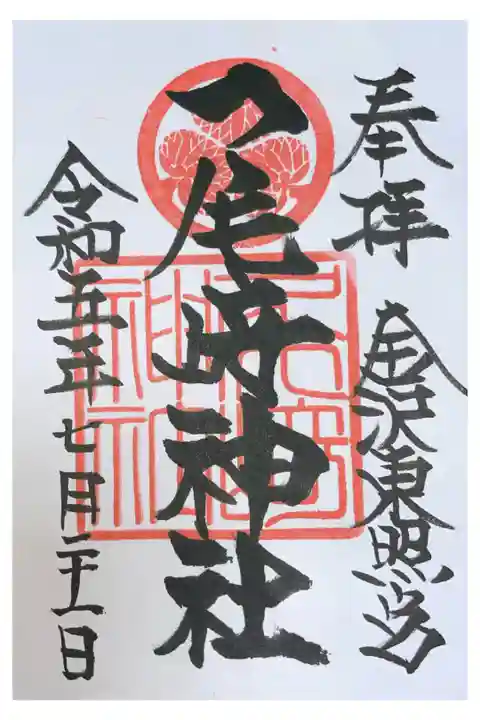 奉拝
金沢東照宮
尾﨑神社
令和五年七月二十一日